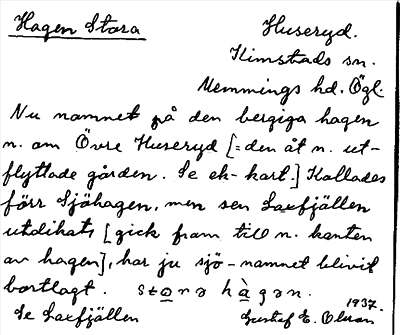 Hagen Stora
Huseryd.
Kimstads sn.
Memmings hd. Ögl.
Nu namnet på den bergiga hagen
n. om Övre Huseryd [= den åt n. ut-
flyttade gården. Se ek-kart.] Kallades
förr Sjöhagen, men sen Laxfjällen
utdikats, [gick fram till n. kanten
av hagen], har ju sjö-namnet blivit
bortlagt. stọrə hàgən.
1937.
Se Laxfjällen Gustaf E. Olsson